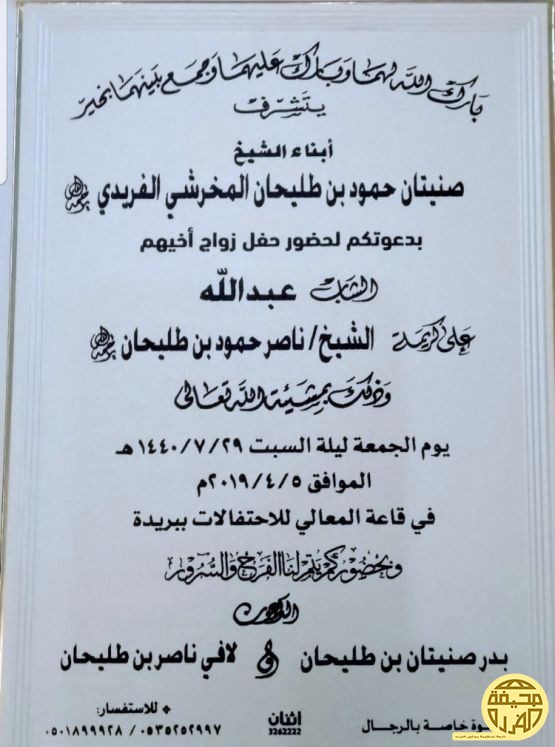 بارك الله لهما وبارك عليهما وجمع بينهما بخير
يتشرف
أبناء الشيخ
صنيتان حمود بن طليحان المخرشي الفريدي رحمه الله
بدعوتكم لحضور حفل زواج أخيهم
الشاب عبدالله
على كريمة الشيخ/ ناصر حمود بن طليحان رحمه الله
وذلك بمشيئة الله تعالى
يوم الجمعة ليلة السبت ١٤٤٠/٧/٢٩ هـ
الموافق ٢٠١٩/٤/٥م
في قاعة المعالي للاحتفالات ببريدة
وبحضوركم يتم لنا الفرح والسرور
الداعون
بدر صنيتان بن طليحان و لافي ناصر بن طليحان
خاصة بالرجال
إتقان
3262222
للاستفسار:
٠٥٣٥٢٥٢٩٩٧ / ٠٥٠١٨٩٩٩٢٨
صحيفة